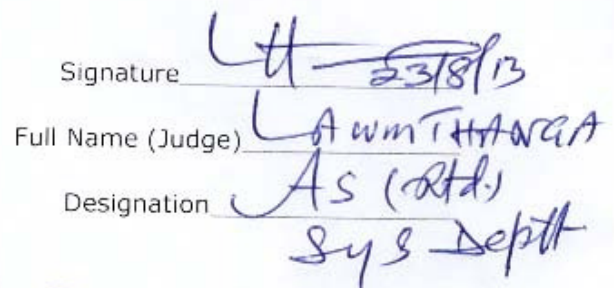 Signature 23/8/13
Full Name (Judge) LAWMTHANGA
Designation AS (Rtd.)
Sys Deptt